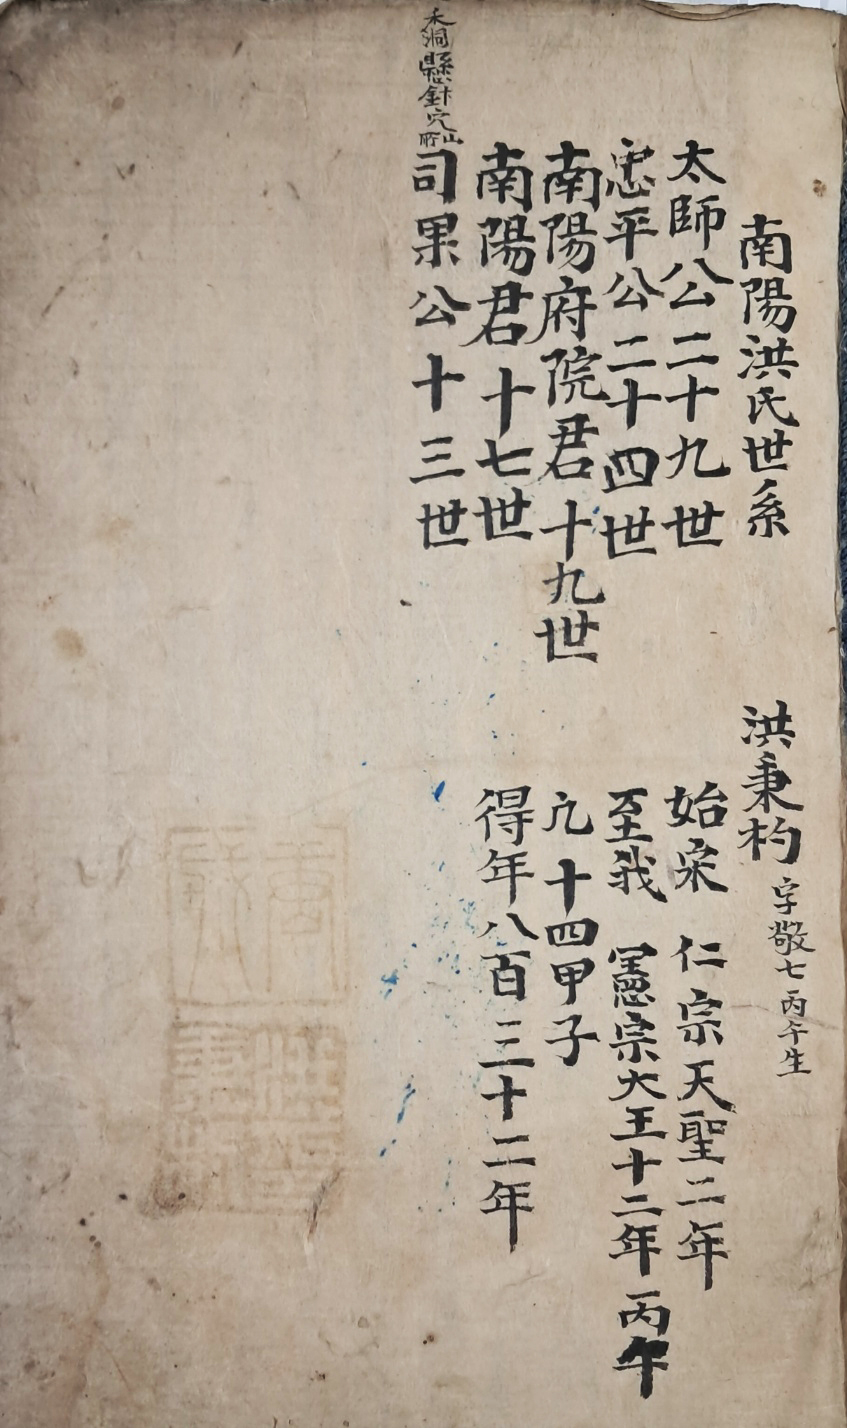 南陽洪氏世系
太師公二十九世
忠平公二十四世
南陽府院君十九世
南陽君十七世
禾洞懸針穴
司果公十三世
洪秉杓 字敬七丙午生
始宋 仁宗天聖二年
至我 憲宗大王十二年丙午
凢十四甲子
得年八百三十二年